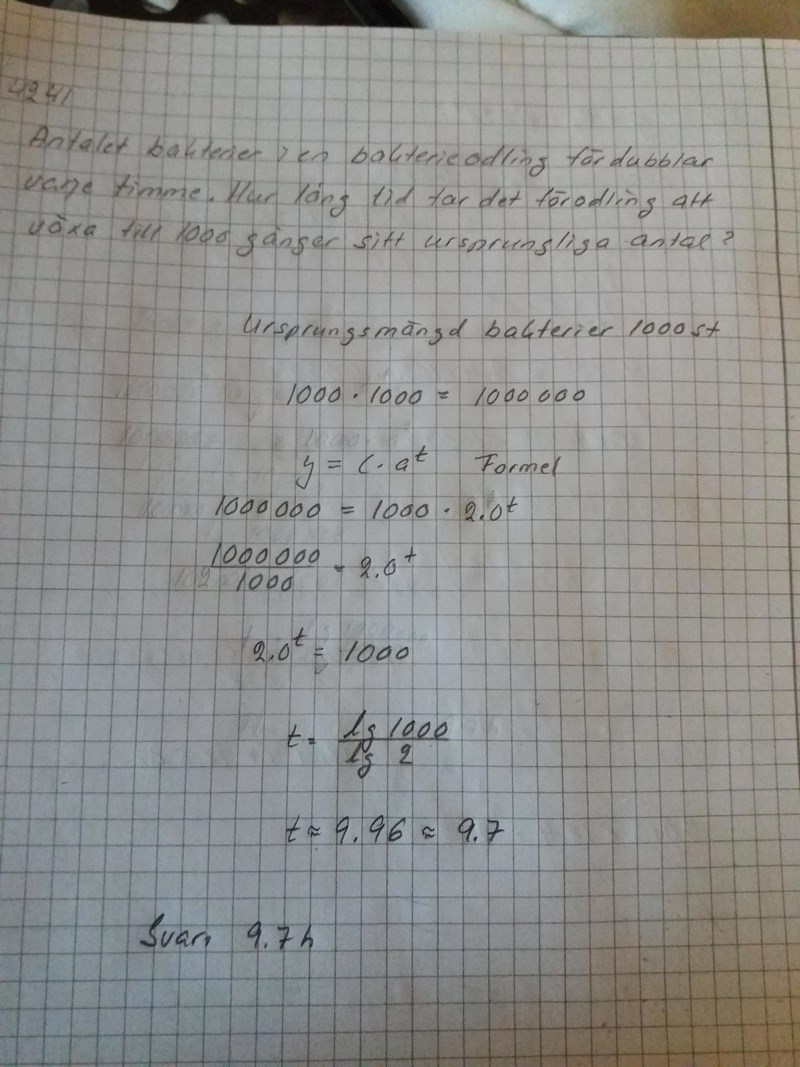 4241
Antalet bakterier i en bakterieodling fördubblar
varje timme. Hur lång tid tar det förodling att
växa till 1000 gånger sitt ursprungliga antal?
Ursprungsmängd bakterier 1000st
1000 · 1000 = 1000 000
y = C · a^t Formel
1000 000 = 1000 · 2.0^t
1000 000 / 1000 = 2.0^t
2.0^t = 1000
t = lg 1000 / lg 2
t ≈ 9.96 ≈ 9.7
Svar, 9.7 h